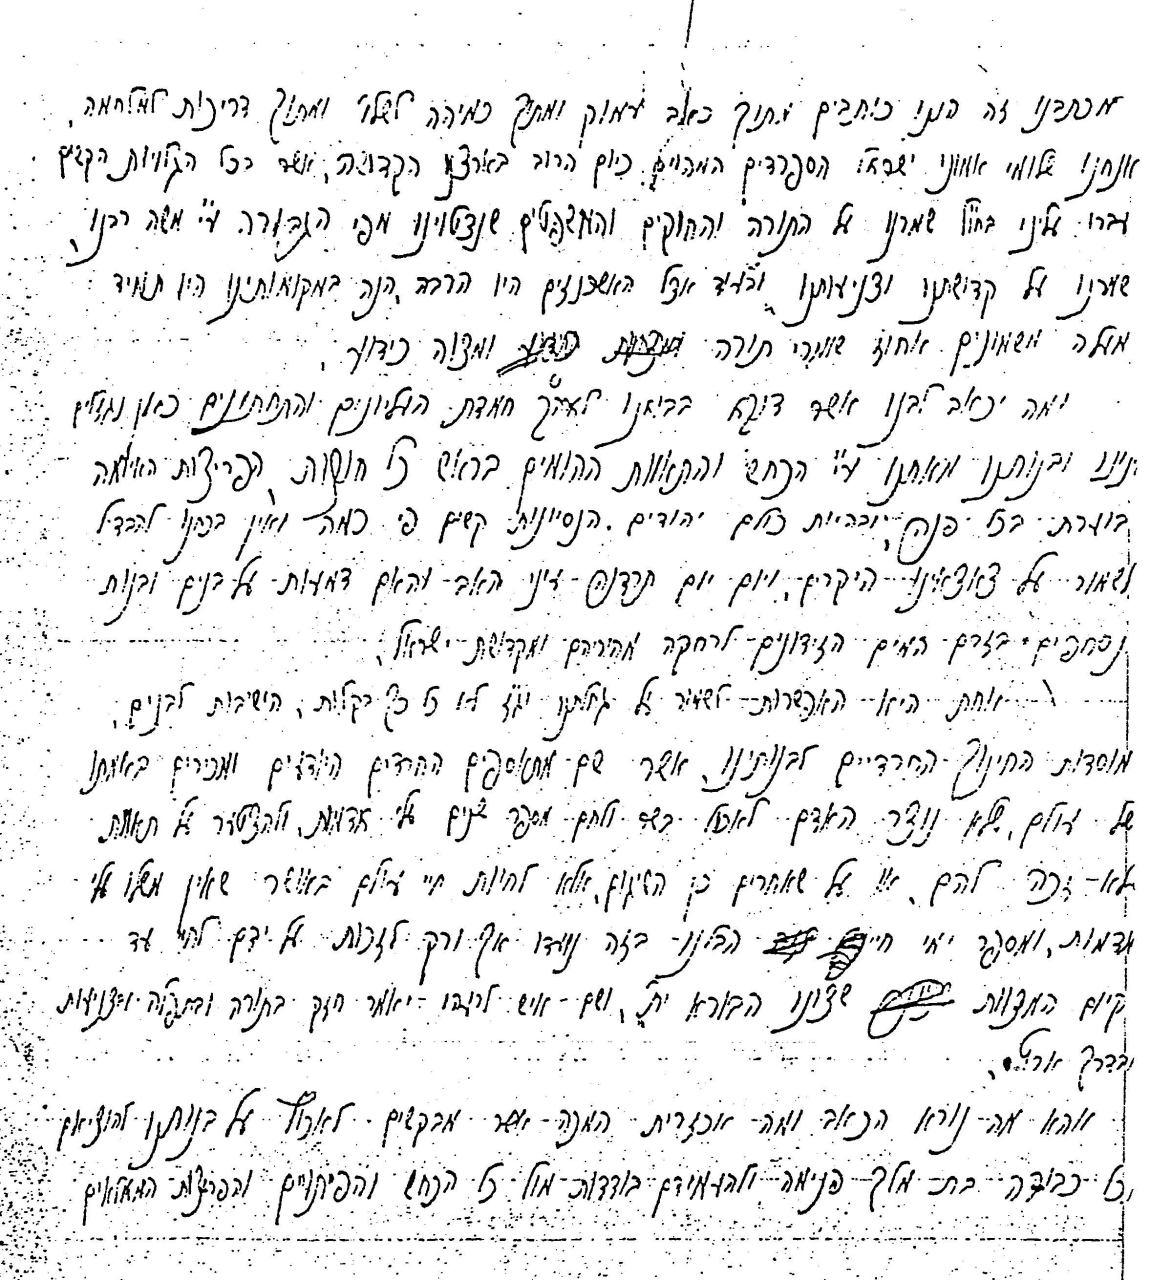 מכתבנו זה הננו כותבים מתוך כאב עמוק ומתוך כמיהה לשלו' ומתוך דריכות למלחמה,
אנחנו שלומי אמוני ישראל הספרדים המהוים כיום הרוב בארצנו הקדושה, אשר בכל הגלויות הקשים
עברו עלינו בחו"ל שמרנו על התורה והחוקים והמשפטים שנצטוינו מפי הגבורה ע"י משה רבנו,
שמרנו על קדושתנו וצניעותנו אצל האשכנזים היו הרבה, הנה במקומותינו היו תמיד
מעלה משמונים אחוז שומרי תורה ומצוה כידוע.
ומה יכאב לבנו אשר דוקא בבואנו לארץ חמדת העליונים והתחתונים כאן נגזלים
בנינו ובנותנו מאתנו ע"י הנחש והתאוות ההומים בראש כל חוצות, הפריצות האיומה
בוערת בכל פנה, ובהיות כולם יהודים. הנסיונות קשים פי כמה ואין בכחנו להבדל
ולשמור על צאצאינו היקרים, ויום יום תרדנה עיני האב והאם דמעות על בנים ובנות
נסחפים בזרם המים הזידונים לרחקה מהוריהם ומקדושת ישראל,
אחת היא האפשרות לשמור על גחלתנו לא כל כך בקלות, הישיבות לבנים,
מוסדות החינוך החרדיים לבנותינו, אשר שם מתאספים החרדים היודעים ומכירים באמתו
של עולם, שלא נוצר האדם לאכול בשר ולחם מספר שנים עלי אדמות, ולהצטער על תאוות
שלא זכה להם, או על שאחרים כן השיגום, אלא לחיות חיי עולם באושר שאין משלו עלי
אדמות, ומספר ימי חיי הבלינו בזה נועדו אך ורק לזכות על ידם לחיי עד
קיום המצוות שצונו הבורא ית', ושם איש לרעהו יאמר חזק בתורה ובתפלה ובצניעות
ובדרך ארץ.
אהא מה נורא הכאב ומה אכזרית המכה אשר מבקשים על בנותנו להוציאם
כל כבודה בת מלך פנימה ולהעמידם בודדות מול כל הנחש והפיתויים והפריצות הממלאים